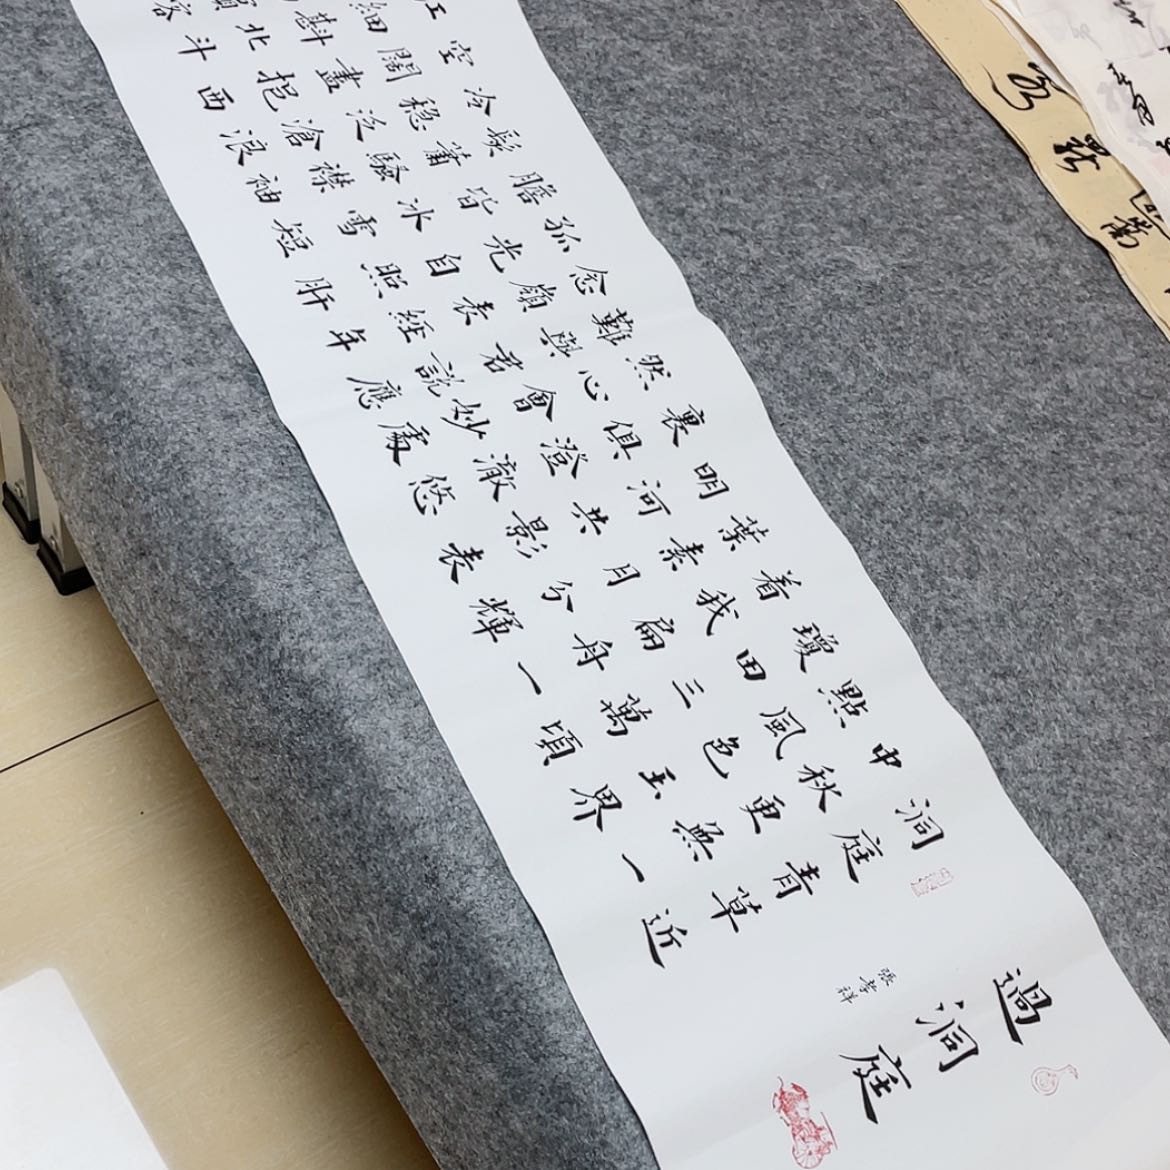 過洞庭
張孝祥
洞庭青草近
中秋更無一
點風色玉界
瓊田三萬頃
着我扁舟一
葉素月分輝
明河共影表
裏俱澄澈悠
然心會妙處
難與君說應
念嶺表經年
孤光自照肝
膽皆冰雪短
髮蕭騷襟袖
冷穩泛滄浪
空闊盡挹西
江細斟北斗
賓客